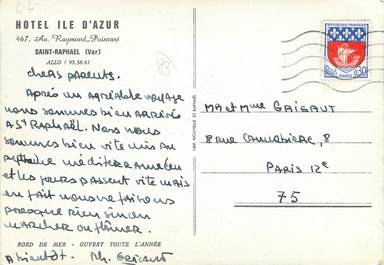 HOTEL ILE D'AZUR
467, Av. Raymond Poincaré
SAINT-RAPHAEL (Var)
ALLO ! 95.38.61
chers parents.
Après un agréable voyage
nous sommes bien arrivés
à St Raphaël. Nous nous
sommes bien vite mis au
rythme méditerranéen
et les jours passent vite mais
en fait nous ne faisons
presque rien sinon
marcher ou flâner.
A bientôt.
BORD DE MER - OUVERT TOUTE L'ANNÉE
REPUBLIQUE FRANÇAISE
0,30
PARIS
Mr et Mme GRIGAUT
8 rue CANNEBIERE, 8
PARIS 12e
75